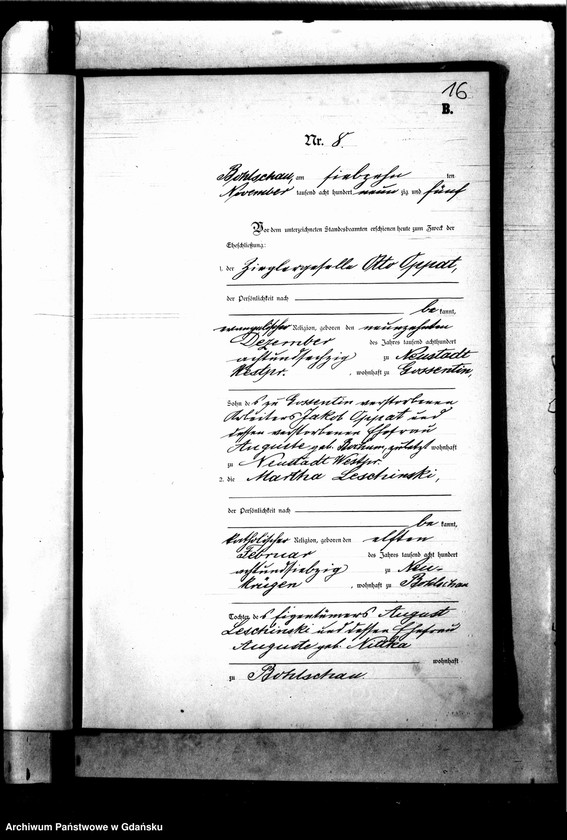 16
B.
Nr. 8.
Bohlschau, am siebzehn ten
November tausend acht hundert neunzig und fünf
Vor dem unterzeichneten Standesbeamten erschienen heute zum Zweck der
Eheschließung:
1. der Zieglergeselle Otto Oppat,
der Persönlichkeit nach
bekannt,
evangelischer Religion, geboren den neunzehnten
Dezember des Jahres tausend achthundert
achtundsechzig zu Neustadt
Westpr. , wohnhaft zu Gossentin,
Sohn des zu Gossentin verstorbenen
Arbeiters Jakob Oppat und
dessen verstorbenen Ehefrau
Auguste geb. zuletzt wohnhaft
zu Neustadt Westpr.
2. die Martha Leschinski,
der Persönlichkeit nach
bekannt,
katholischer Religion, geboren den elften
Februar des Jahres tausend acht hundert
achtundsiebzig zu Neu-
krügen , wohnhaft zu Bohlschau
Tochter des Eigentümers August
Leschinski und dessen Ehefrau
Auguste geb. Nitzka
wohnhaft
zu Bohlschau.
Archiwum Państwowe w Gdańsku